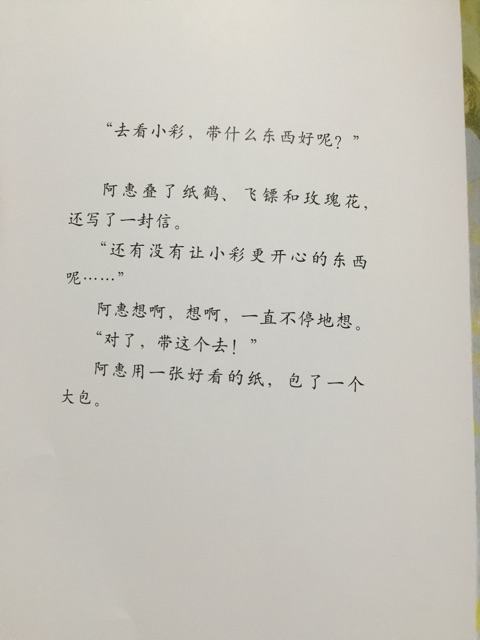 “去看小彩，带什么东西好呢？”
阿惠叠了纸鹤、飞镖和玫瑰花，
还写了一封信。
“还有没有让小彩更开心的东西
呢……”
阿惠想啊，想啊，一直不停地想。
“对了，带这个去！”
阿惠用一张好看的纸，包了一个
大包。